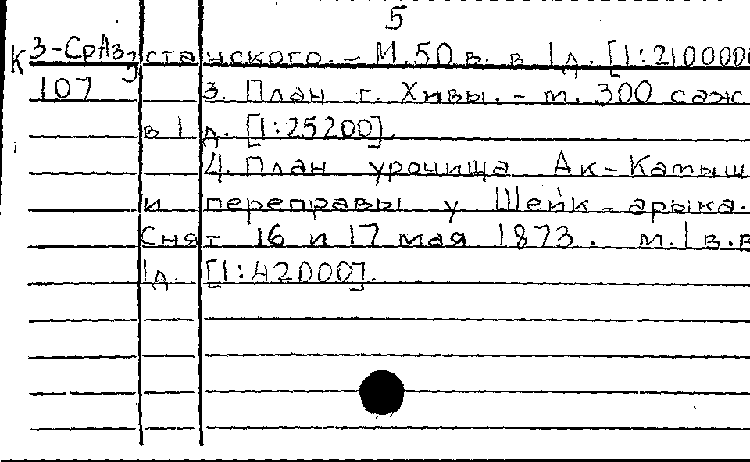 5
К 3-СрАз станского. - М. 50 в. в 1 д. [1:2100000
107 3. План г. Хивы. - м. 300 саж
в 1 д. [1:25200].
4. План урочища Ак-Камыш
и переправы у Шейк-арыка.
Снят 16 и 17 мая 1873. м. 1 в. в
1 д. [1:42000].